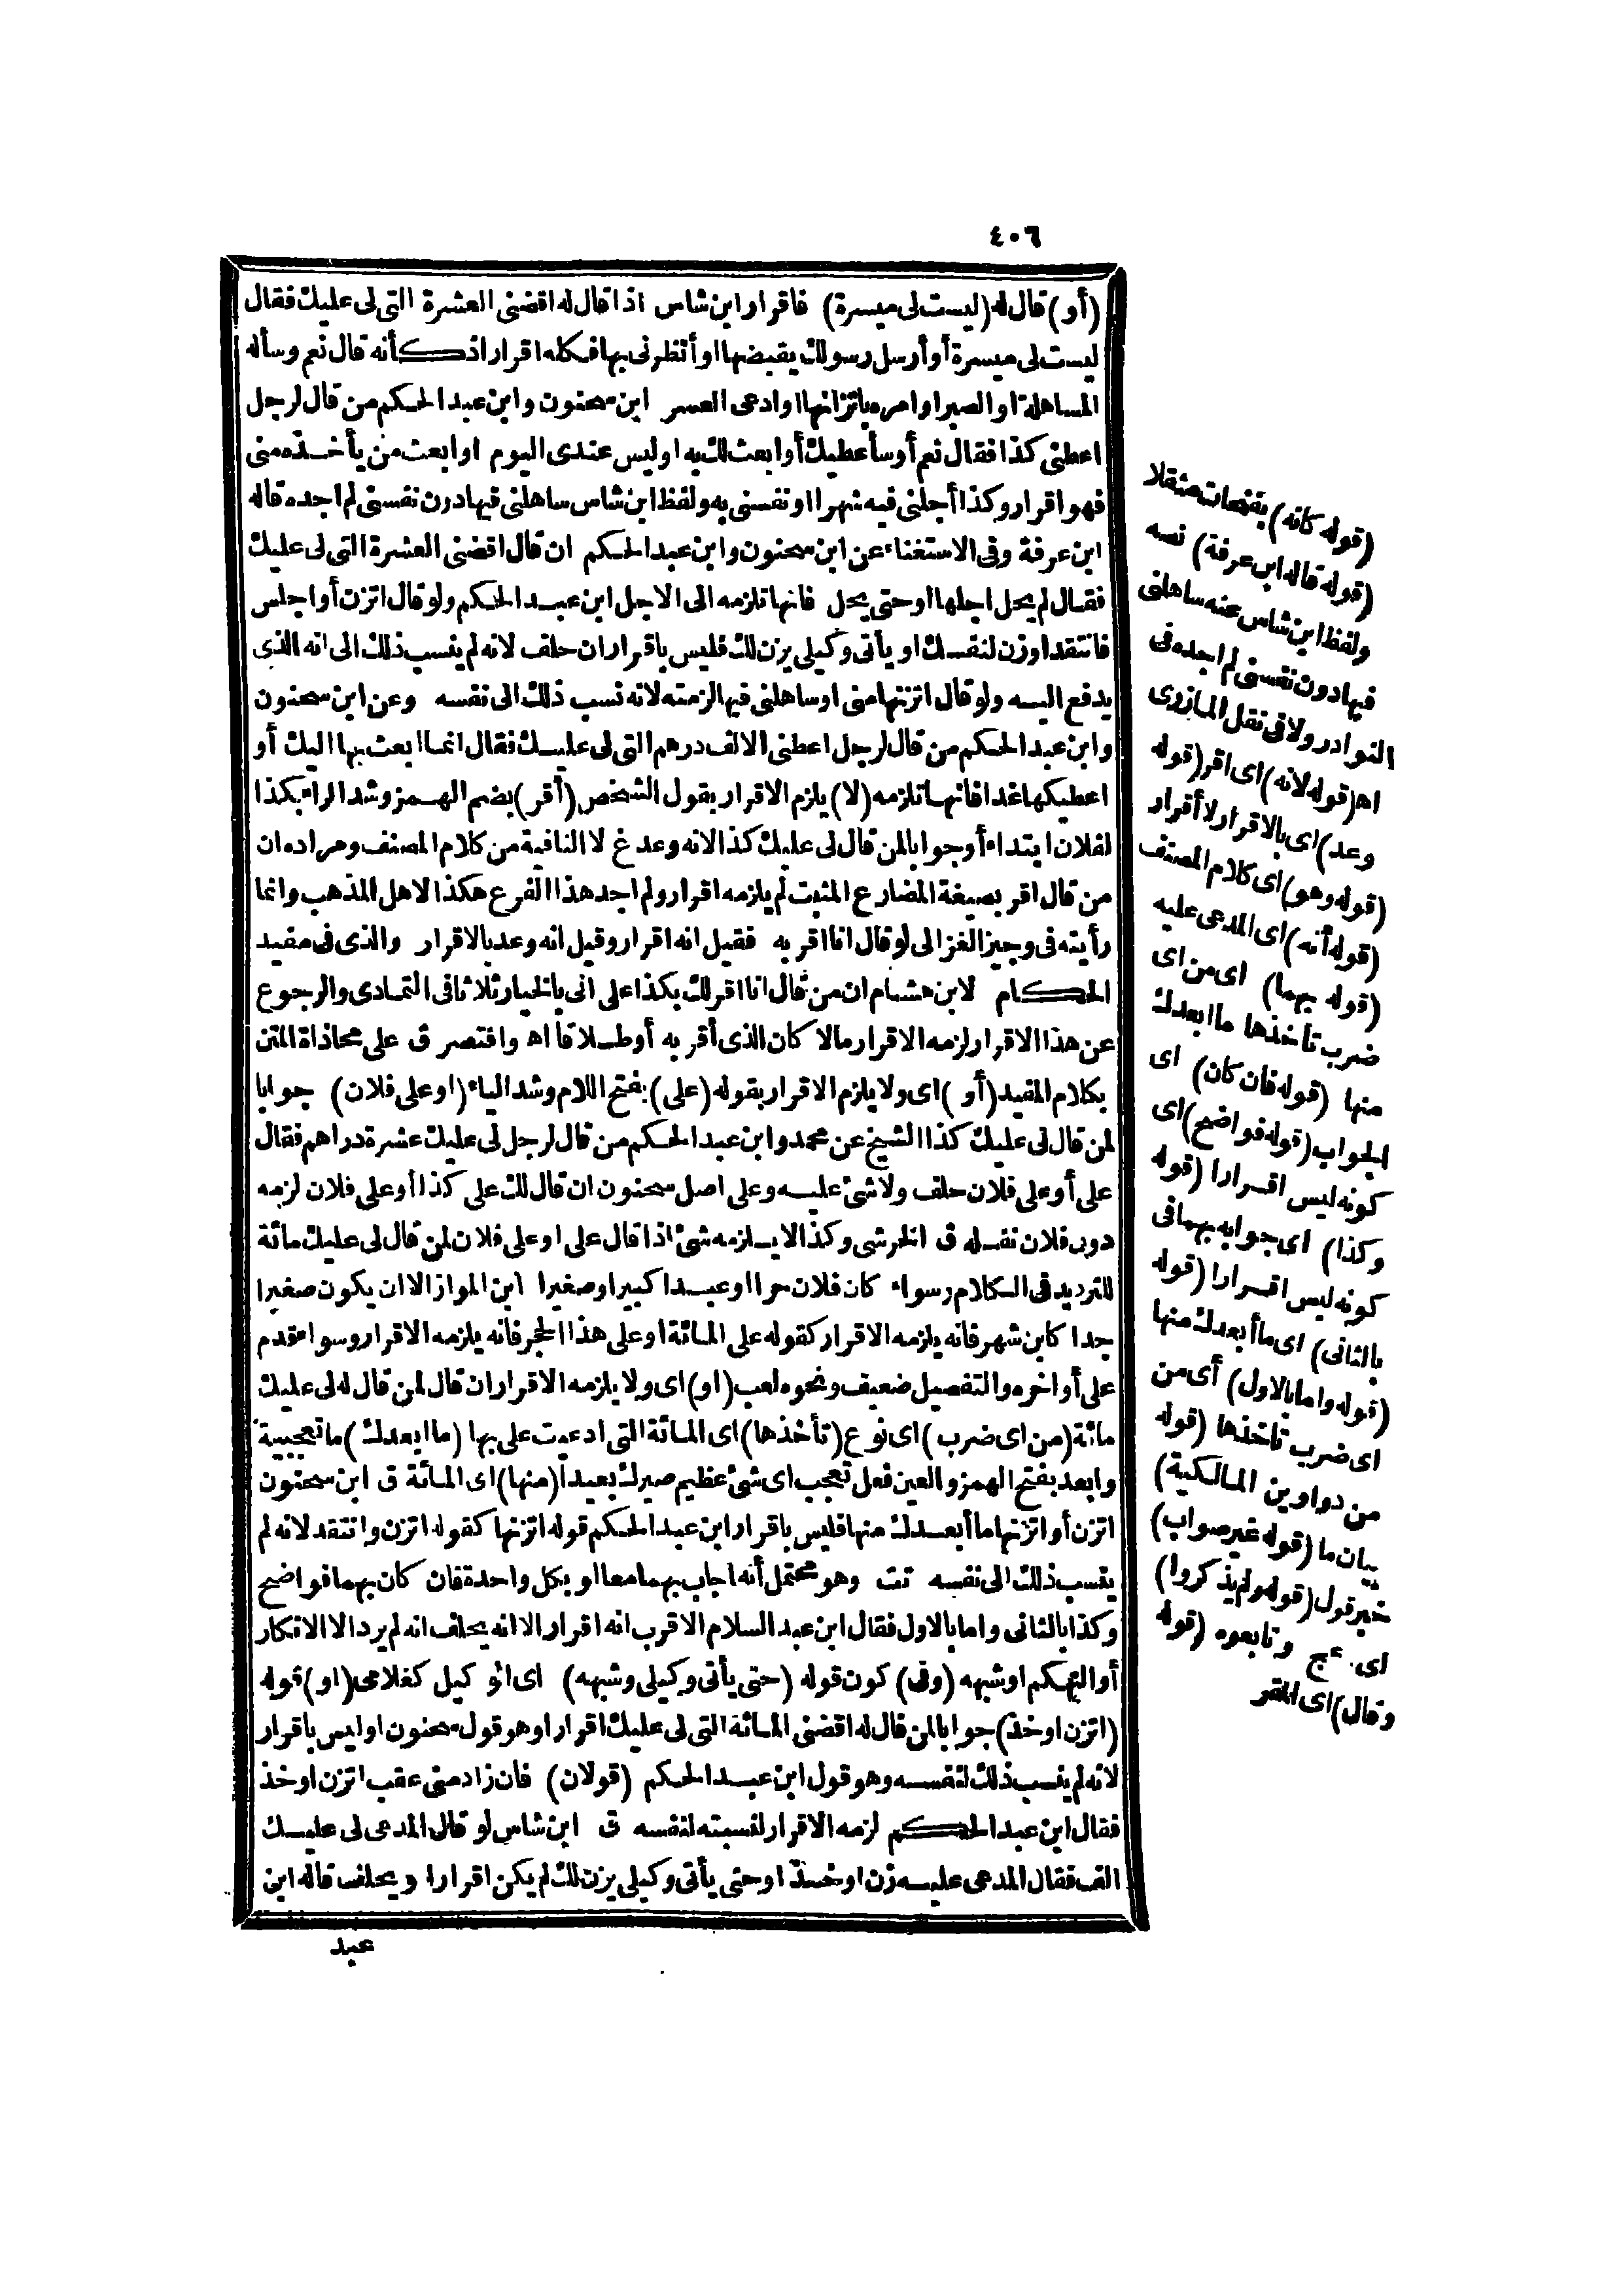 ٤٠٦
(أو) قال له (ليست لى ميسرة) فاقرار ابن شاس اذا قال له اقضنى العشرة التى لى عليك فقال
ليست لى ميسرة أو أرسل رسولك يقبضها او أنظرنى بها فكله اقرار اذ كأنه قال نعم وسأله
المساهلة او الصبر او امره باتزانها او ادعى العسر ابن سحنون وابن عبد الحكم من قال لرجل
اعطنى كذا فقال نعم أو سأعطيك أو ابعث لك به او ليس عندى اليوم او ابعث من يأخذه منى
فهو اقرار وكذا أجلنى فيه شهرا او نفسنى به ولفظ ابن شاس ساهلنى فيها دون نفسنى لم اجده قاله
ابن عرفة وفى الاستغناء عن ابن سحنون وابن عبد الحكم ان قال اقضنى العشرة التى لى عليك
فقال لم يحل اجلها او حتى يحل فانها تلزمه الى الاجل ابن عبد الحكم ولو قال اتزن أو اجلس
فانتقد او زن لنفسك او يأتى وكيلى يزن لك فليس باقرار ان حلف لانه لم ينسب ذلك الى انه الذى
يدفع اليه ولو قال اتزنها منى او ساهلنى فيها لزمته لانه نسب ذلك الى نفسه وعن ابن سحنون
وابن عبد الحكم من قال لرجل اعطنى الالف درهم التى لى عليك فقال انما ابعث بها اليك أو
اعطيكها غدا فانها تلزمه (لا) يلزم الاقرار بقول الشخص (أقر) بضم الهمز وشد الراء بكذا
لفلان ابتداء أو جوابا لمن قال لى عليك كذا لانه وعد غ لا النافية من كلام المصنف ومراده ان
من قال اقر بصيغة المضارع المثبت لم يلزمه اقرار ولم اجد هذا الفرع هكذا لاهل المذهب وانما
رأيته فى وجيز الغزالى لو قال انا اقر به فقيل انه اقرار وقيل انه وعد بالاقرار والذى فى مفيد
الحكام لابن هشام ان من قال انا اقر لك بكذا على انى بالخيار ثلاثا فى التمادى والرجوع
عن هذا الاقرار لزمه الاقرار مالا كان الذى أقر به أو طلاقا اه واقتصر ق على محاذاة المتن
بكلام المفيد (أو) اى ولا يلزم الاقرار بقوله (على) بفتح اللام وشد الياء (او على فلان) جوابا
لمن قال لى عليك كذا الشيخ عن محمد وابن عبد الحكم من قال لرجل لى عليك عشرة دراهم فقال
على أو على فلان حلف ولا شئ عليه وعلى اصل سحنون ان قال لك على كذا أو على فلان لزمه
دون فلان نقله ق الخرشى وكذا لا يلزمه شئ اذا قال على او على فلان لمن قال لى عليك مائة
للترديد فى الكلام وسواء كان فلان حرا او عبدا كبيرا او صغيرا ابن المواز الا ان يكون صغيرا
جدا كابن شهر فانه يلزمه الاقرار كقوله على المائة او على هذا الحجر فانه يلزمه الاقرار وسواء قدم
على أو اخره والتفصيل ضعيف ونحوه لعب (او) اى ولا يلزمه الاقرار ان قال لمن قال له لى عليك
مائة (من اى ضرب) اى نوع (تأخذها) اى المائة التى ادعيت على بها (ما ابعدك) ما تعجبية
وابعد بفتح الهمز والعين فعل تعجب اى شئ عظيم صيرك بعيدا (منها) اى المائة ق ابن سحنون
اتزن أو اتزنها ما أبعدك منها فليس باقرار ابن عبد الحكم قوله اتزنها كقوله اتزن وانتقد لانه لم
ينسب ذلك الى نفسه تت وهو محتمل أنه اجاب بهما معا او بكل واحدة فان كان بهما فواضح
وكذا بالثانى واما بالاول فقال ابن عبد السلام الاقرب انه اقرار الا انه يحلف انه لم يرد الا الانكار
أو التهكم او شبهه (وفى) كون قوله (حتى يأتى وكيلى وشبهه) اى الوكيل كغلامى (او) قوله
(اتزن او خذ) جوابا لمن قال له اقضنى المائة التى لى عليك اقرار او هو قول سحنون او ليس باقرار
لانه لم ينسب ذلك لنفسه وهو قول ابن عبد الحكم (قولان) فان زاد منى عقب اتزن او خذ
فقال ابن عبد الحكم لزمه الاقرار لنسبته لنفسه ق ابن شاس لو قال المدعى لى عليك
الف فقال المدعى عليه زن او خذ او حتى يأتى وكيلى يزن لك لم يكن اقرارا ويحلف قاله ابن
عبد
(قوله كانه) بفتحات مثقلا
(قوله قاله ابن عرفة) نصه
ولفظ ابن شاس عنه ساهلنى
فيها دون نفسنى لم اجده فى
النوادر ولا فى نقل المازرى
اه (قوله لانه) اى اقر (قوله
وعد) اى بالاقرار لا أقرار
(قوله وهو) اى كلام المصنف
(قوله أنه) اى المدعى عليه
(قوله بهما) اى من اى
ضرب تأخذها ما ابعدك
منها (قوله فان كان) اى
الجواب (قوله فواضح) اى
كونه ليس اقرارا (قوله
وكذا) اى جوابه بهما فى
كونه ليس اقرارا (قوله
بالثانى) اى ما أبعدك منها
(قوله واما بالاول) أى من
اى ضرب تأخذها (قوله
من دواوين المالكية)
بيان ما (قوله غير صواب)
خبر قول (قوله ولم يذكروا)
اى عج وتابعوه (قوله
وقال) اى المقر